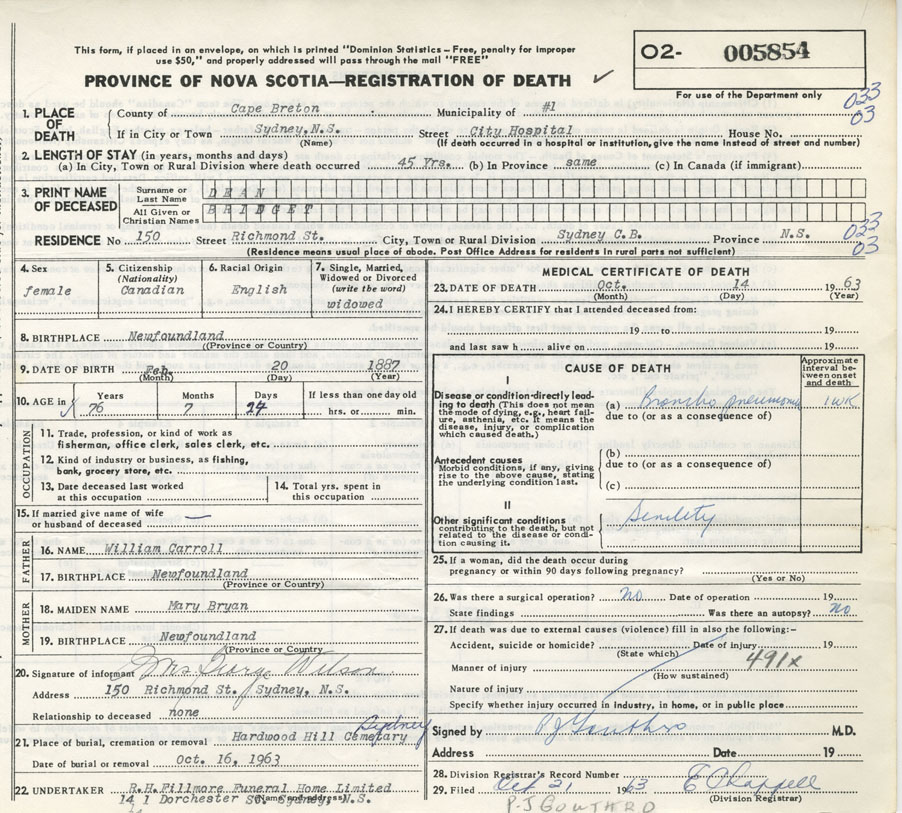 This form, if placed in an envelope, on which is printed "Dominion Statistics – Free, penalty for improper
use $50," and properly addressed will pass through the mail "FREE"
O2- 005854
PROVINCE OF NOVA SCOTIA—REGISTRATION OF DEATH ✓
For use of the Department only
033
03
1. PLACE OF DEATH
County of Cape Breton Municipality of #1
If in City or Town Sydney, N.S. Street City Hospital House No.
(Name) (If death occurred in a hospital or institution, give the name instead of street and number)
2. LENGTH OF STAY (in years, months and days)
(a) In City, Town or Rural Division where death occurred 45 Yrs. (b) In Province same (c) In Canada (if immigrant)
3. PRINT NAME OF DECEASED
Surname or Last Name DEAN
All Given or Christian Names BRIDGET
RESIDENCE No 150 Street Richmond St. City, Town or Rural Division Sydney C.B. Province N.S.
(Residence means usual place of abode. Post Office Address for residents in rural parts not sufficient)
033
03
4. Sex
female
5. Citizenship
(Nationality)
Canadian
6. Racial Origin
English
7. Single, Married,
Widowed or Divorced
(write the word)
widowed
8. BIRTHPLACE Newfoundland
((Province or Country)
9. DATE OF BIRTH Feb. 20 1887
(Month) (Day) (Year)
10. AGE in Years Months Days If less than one day old
76 7 24 hrs. or min.
OCCUPATION
11. Trade, profession, or kind of work as
fisherman, office clerk, sales clerk, etc.
12. Kind of industry or business, as fishing,
bank, grocery store, etc.
13. Date deceased last worked
at this occupation
14. Total yrs. spent in
this occupation
15. If married give name of wife
or husband of deceased —
FATHER
16. NAME William Carroll
17. BIRTHPLACE Newfoundland
(Province or Country)
MOTHER
18. MAIDEN NAME Mary Bryan
19. BIRTHPLACE Newfoundland
(Province or Country)
20. Signature of informant Mrs. George Wilson
Address 150 Richmond St. Sydney, N.S.
Relationship to deceased none
21. Place of burial, cremation or removal Hardwood Hill Cemetary Sydney
Date of burial or removal Oct. 16, 1963
22. UNDERTAKER R.H. Fillmore Funeral Home Limited
(Name and address)
14 1 Dorchester St. Sydney, N.S.
MEDICAL CERTIFICATE OF DEATH
23. DATE OF DEATH Oct. 14 1963
(Month) (Day) (Year)
24. I HEREBY CERTIFY that I attended deceased from:
19 to 19
and last saw h alive on 19
CAUSE OF DEATH
Approximate
interval be-
tween onset
and death
I
Disease or condition directly lead-
ing to death (This does not mean
the mode of dying, e.g., heart fail-
ure, asthenia, etc. It means the
disease, injury, or complication
which caused death.)
(a) Broncho pneumonia 1 WK
due to (or as a consequence of)
Antecedent causes
Morbid conditions, if any, giving
rise to the above cause, stating
the underlying condition last.
(b)
due to (or as a consequence of)
(c)
II
Other significant conditions
contributing to the death, but not
related to the disease or condi-
tion causing it.
Senility
25. If a woman, did the death occur during
pregnancy or within 90 days following pregnancy?
(Yes or No)
26. Was there a surgical operation? no Date of operation 19
State findings Was there an autopsy? no
27. If death was due to external causes (violence) fill in also the following:–
Accident, suicide or homicide? Date of injury 19
(State which)
491x
Manner of injury
(How sustained)
Nature of injury
Specify whether injury occurred in industry, in home, or in public place
Signed by P J Gouthro M.D.
Address Date 19
28. Division Registrar's Record Number
29. Filed Oct 21 1963 E Chappell
(Division Registrar)
P.J GOUTHRO